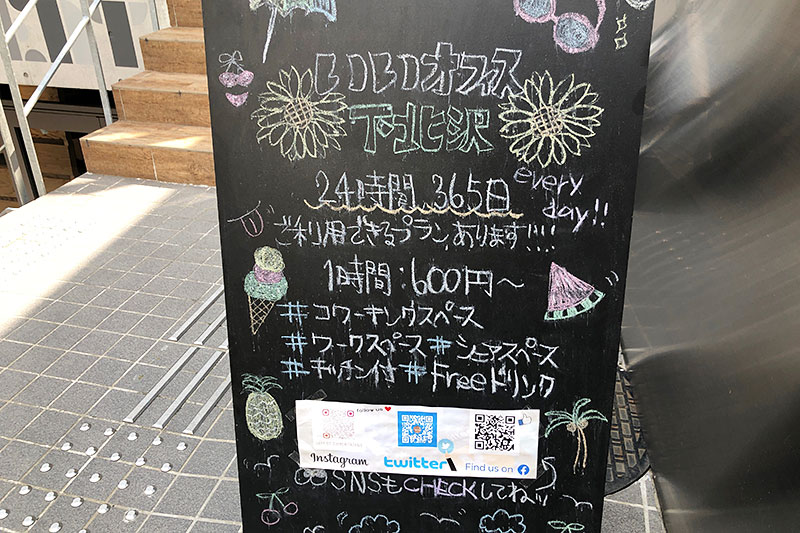 いいオフィス
下北沢
24時間 365日 every day!!
ご利用できるプランあります!!!!
1時間:600円~
#コワーキングスペース
#ワークスペース #シェアスペース
#キッチン付 #Freeドリンク
follow us
Instagram twitter Find us on
SNSもCHECKしてねッ